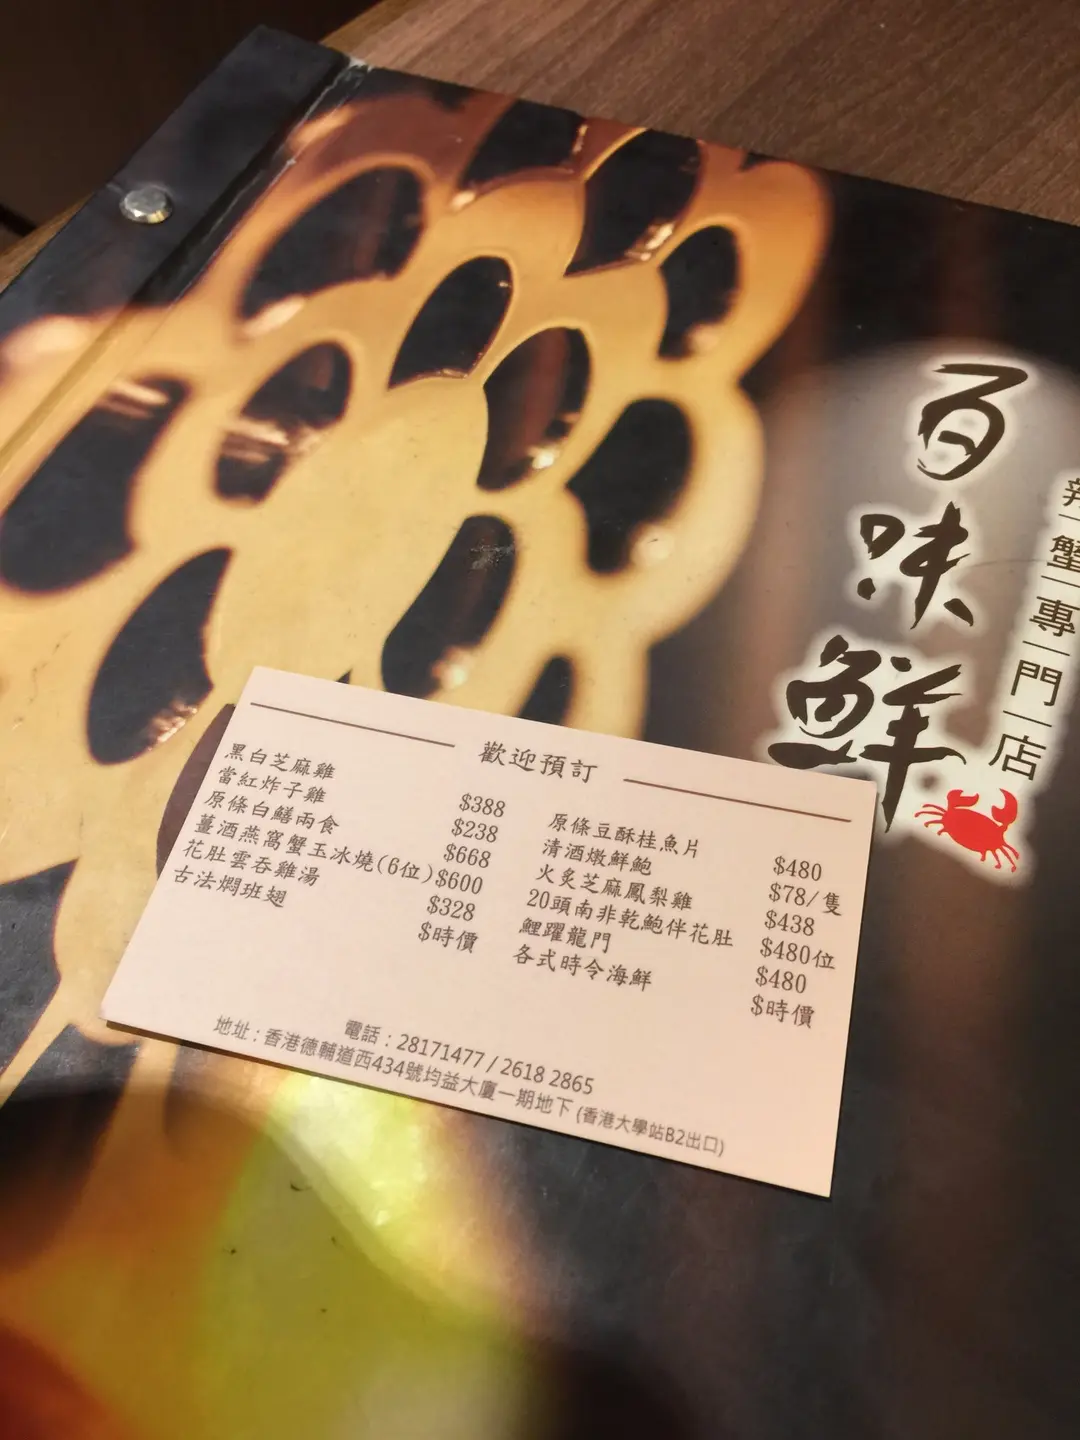 百味鮮
辣蟹專門店
歡迎預訂
黑白芝麻雞 $388
當紅炸子雞 $238
原條白鱔兩食 $668
薑酒燕窩蟹玉冰燒(6位) $600
花肚雲吞雞湯 $328
古法燜班翅 $時價
原條豆酥桂魚片 $480
清酒燉鮮鮑 $78/隻
火炙芝麻鳳梨雞 $438
20頭南非乾鮑伴花肚 $480位
鯉躍龍門 $480
各式時令海鮮 $時價
電話：28171477 / 2618 2865
地址：香港德輔道西434號均益大廈一期地下 (香港大學站B2出口)